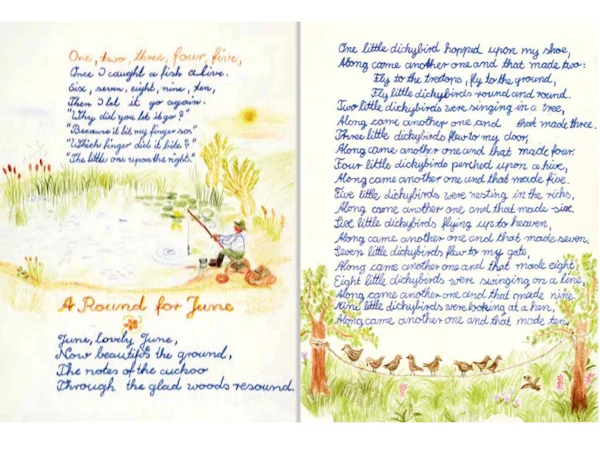 One, two, three, four, five,
Once I caught a fish alive.
Six, seven, eight, nine, ten,
Then I let it go again.
"Why did you let it go?"
"Because it bit my finger so."
"Which finger did it bite?"
"The little one upon the right."
A Round for June
June, lovely June,
Now beautifies the ground,
The notes of the cuckoo
Through the glad woods resound.
One little dickybird hopped upon my shoe,
Along came another one and that made two:
Fly to the treetops, fly to the ground,
Fly little dickybirds round and round.
Two little dickybirds were singing in a tree,
Along came another one and that made three.
Three little dickybirds flew to my door,
Along came another one and that made four.
Four little dickybirds perched upon a hive,
Along came another one and that made five.
Five little dickybirds were nesting in the ricks,
Along came another one and that made six.
Six little dickybirds flying up to heaven,
Along came another one and that made seven.
Seven little dickybirds flew to my gate,
Along came another one and that made eight,
Eight little dickybirds were swinging on a line,
Along came another one and that made nine.
Nine little dickybirds were looking at a hen,
Along came another one and that made ten.